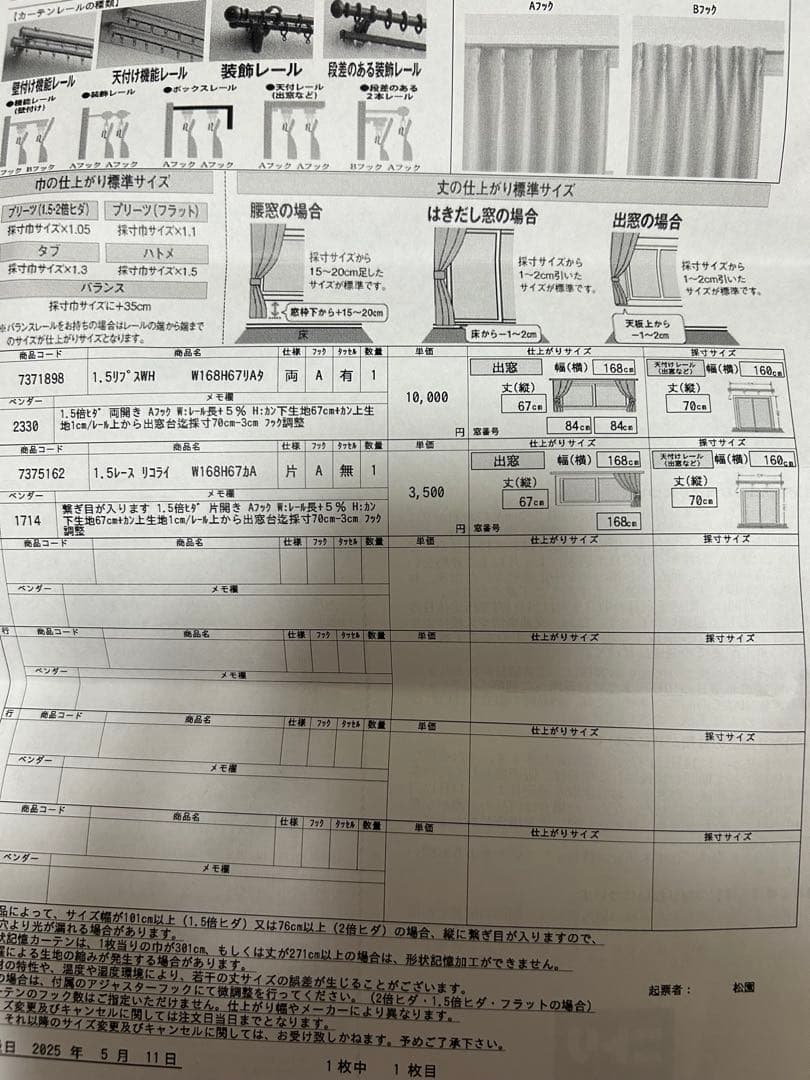 【カーテンレールの種類】
壁付け機能レール
天付け機能レール
装飾レール
段差のある装飾レール
Aフック
Bフック
●機能レール
(壁付け)
●装飾レール
●ボックスレール
●天付レール
(出窓など)
●段差のある
2本レール
フック Bフック
Aフック Aフック
Aフック Aフック
Aフック Aフック
Bフック Aフック
巾の仕上がり標準サイズ
プリーツ(1.5・2倍ヒダ)
プリーツ(フラット)
採寸巾サイズ×1.05
採寸巾サイズ×1.1
タブ
ハトメ
採寸巾サイズ×1.3
採寸巾サイズ×1.5
バランス
採寸巾サイズに+35cm
※バランスレールをお持ちの場合はレールの端から端まで
のサイズが仕上がりサイズとなります。
丈の仕上がり標準サイズ
腰窓の場合
採寸サイズから
15~20cm足した
サイズが標準です。
窓枠下から+15~20cm
床
はきだし窓の場合
採寸サイズから
1~2cm引いた
サイズが標準です。
床から-1~2cm
出窓の場合
採寸サイズから
1~2cm引いた
サイズが標準です。
天板上から
-1~2cm
商品コード 商品名 仕様 フック タッセル 数量 単価 仕上がりサイズ 採寸サイズ
7371898 1.5リブスWH W168H67リAタ 両 A 有 1
10,000
円
出窓 幅(横) 168cm
丈(縦)
67cm
84cm 84cm
窓番号
天付けレール
(出窓など)
幅(横) 160cm
丈(縦)
70cm
ベンダー メモ欄
2330
1.5倍ヒダ 両開き Aフック W:レール長+5% H:カン下生地67cm+カン上生
地1cm/レール上から出窓台迄採寸70cm-3cm フック調整
商品コード 商品名 仕様 フック タッセル 数量 単価 仕上がりサイズ 採寸サイズ
7375162 1.5レース リコライ W168H67カA 片 A 無 1
3,500
円
出窓 幅(横) 168cm
丈(縦)
67cm
168cm
窓番号
天付けレール
(出窓など)
幅(横) 160cm
丈(縦)
70cm
ベンダー メモ欄
1714
繋ぎ目が入ります 1.5倍ヒダ 片開き Aフック W:レール長+5% H:カン
下生地67cm+カン上生地1cm/レール上から出窓台迄採寸70cm-3cm フック
調整
商品コード 商品名 仕様 フック タッセル 数量 単価 仕上がりサイズ 採寸サイズ
ベンダー メモ欄
行 商品コード 商品名 仕様 フック タッセル 数量 単価 仕上がりサイズ 採寸サイズ
ベンダー メモ欄
行 商品コード 商品名 仕様 フック タッセル 数量 単価 仕上がりサイズ 採寸サイズ
ベンダー メモ欄
商品コード 商品名 仕様 フック タッセル 数量 単価 仕上がりサイズ 採寸サイズ
ベンダー メモ欄
品によって、サイズ幅が101cm以上(1.5倍ヒダ)又は76cm以上(2倍ヒダ)の場合、縦に繋ぎ目が入りますので、
穴より光が漏れる場合があります。
状記憶カーテンは、1枚当りの巾が301cm、もしくは丈が271cm以上の場合は、形状記憶加工ができません。
による生地の縮みが発生する場合があります。
の特性や、温度や湿度環境により、若干の丈サイズの誤差が生じることがございます。
の場合は、付属のアジャスターフックにて微調整を行ってください。(2倍ヒダ・1.5倍ヒダ・フラットの場合)
ーテンのフック数はご指定いただけません。仕上がり幅やメーカーにより異なります。
ズ変更及びキャンセルに関しては注文日当日までとなります。
それ以降のサイズ変更及びキャンセルに関しては、お受け致しかねます。予めご了承下さい。
起票者: 松園
日 2025 年 5 月 11日
1枚中 1枚目